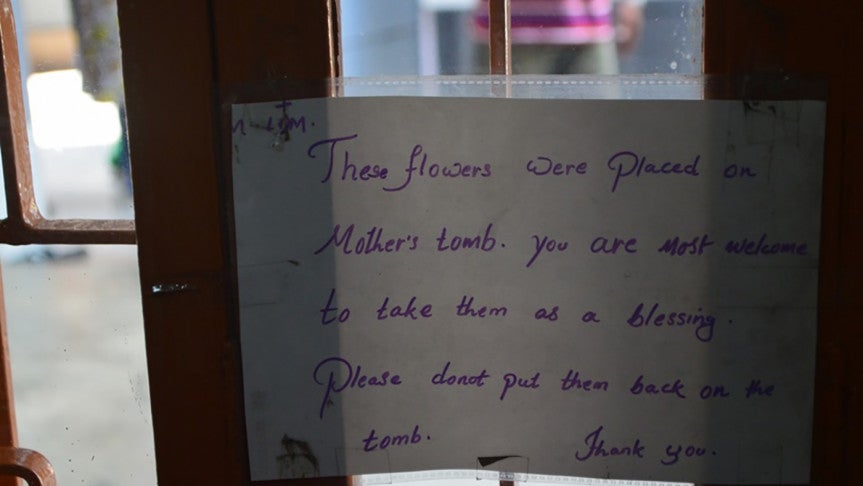 These flowers were placed on
Mother's tomb. you are most welcome
to take them as a blessing.
Please donot put them back on the
tomb. Thank you.